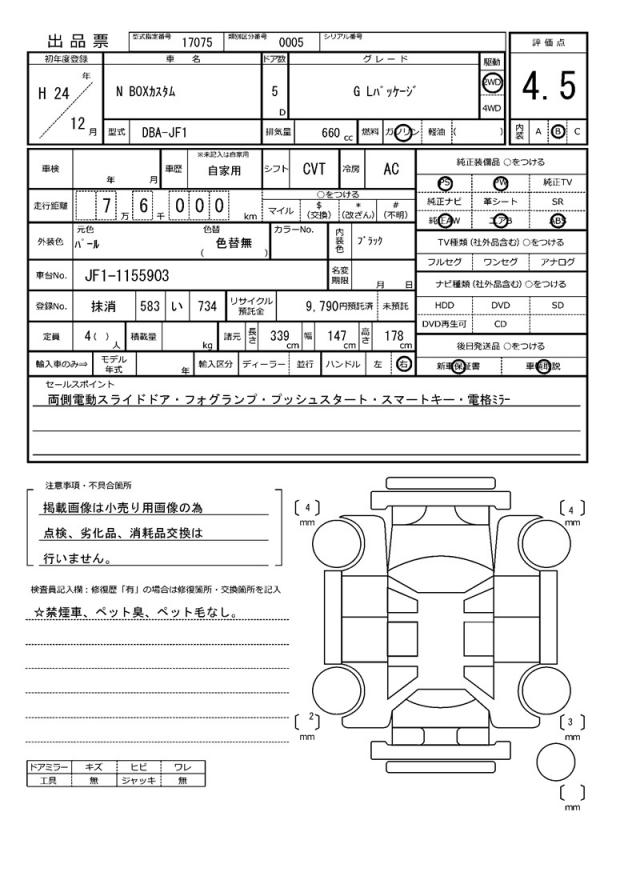 出品票 型式指定番号 17075 類別区分番号 0005 シリアル番号
評価点
4.5
内装 A B C
初年度登録 車名 ドア数 グレード 駆動
H 24 年 N BOXカスタム 5 D G Lパッケージ 2WD
4WD
12 月 型式 DBA-JF1 排気量 660 cc 燃料 ガソリン 軽油 ( )
車検 年 月 車歴 ※未記入は自家用 自家用 シフト CVT 冷房 AC
走行距離 7 万 6 千 0 0 0 km ○をつける
マイル $(交換) *(改ざん) #(不明)
外装色 元色 パール 色替 色替無 ( ) カラーNo. 内装色 ブラック
車台No. JF1-1155903 名変期限 月 日
登録No. 抹消 583 い 734 リサイクル預託金 9,790円預託済 未預託
定員 4( )人 積載量 kg 諸元 長さ 339 cm 幅 147 cm 高さ 178 cm
輸入車のみ⇒ モデル年式 年 輸入区分 ディーラー 並行 ハンドル 左 右
純正装備品 ○をつける
PS PW 純正TV
純正ナビ 革シート SR
純正AW エアB ABS
TV種類 (社外品含む) ○をつける
フルセグ ワンセグ アナログ
ナビ種類 (社外品含む) ○をつける
HDD DVD SD
DVD再生可 CD
後日発送品 ○をつける
新車保証書 車輌取説
セールスポイント
両側電動スライドドア・フォグランプ・プッシュスタート・スマートキー・電格ミラー
注意事項・不具合箇所
掲載画像は小売り用画像の為
点検、劣化品、消耗品交換は
行いません。
検査員記入欄：修復歴「有」の場合は修復箇所・交換箇所を記入
☆禁煙車、ペット臭、ペット毛なし。
ドアミラー キズ ヒビ ワレ
工具 無 ジャッキ 無
〔4〕mm
〔4〕mm
〔2〕mm
〔3〕mm
〔 〕mm